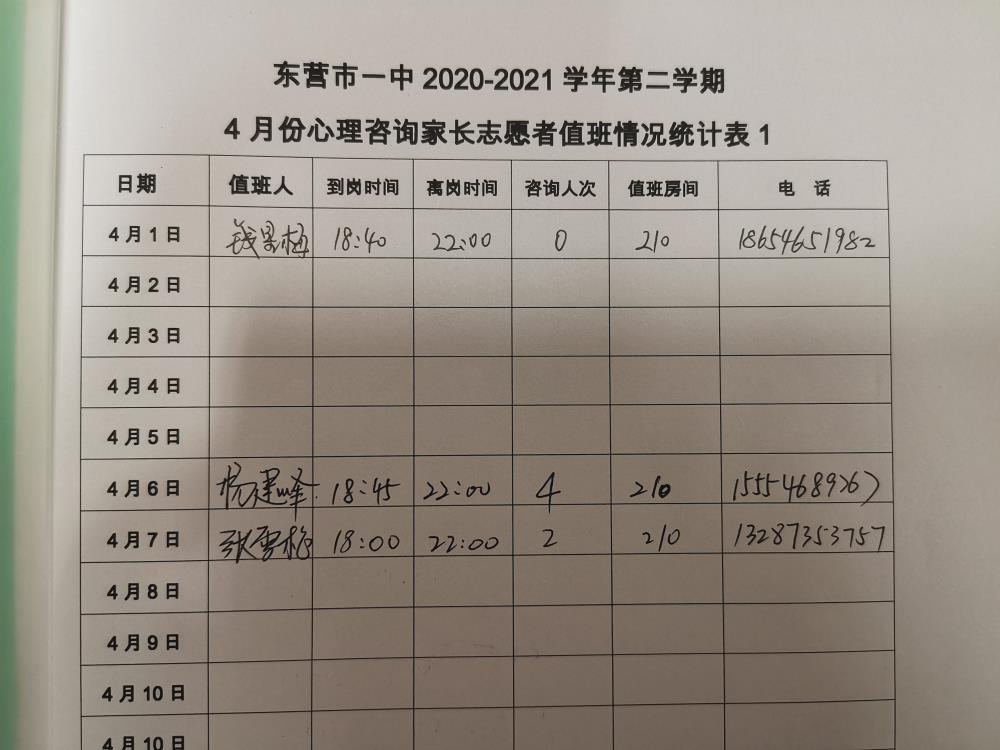 东营市一中 2020-2021 学年第二学期
4 月份心理咨询家长志愿者值班情况统计表 1
日期 值班人 到岗时间 离岗时间 咨询人次 值班房间 电 话
4 月 1 日 18:40 22:00 0 210 18654651982
4 月 2 日
4 月 3 日
4 月 4 日
4 月 5 日
4 月 6 日 杨建峰 18:45 22:00 4 210
4 月 7 日 张雪梅 18:00 22:00 2 210 13287353757
4 月 8 日
4 月 9 日
4 月 10 日
4 月 10 日